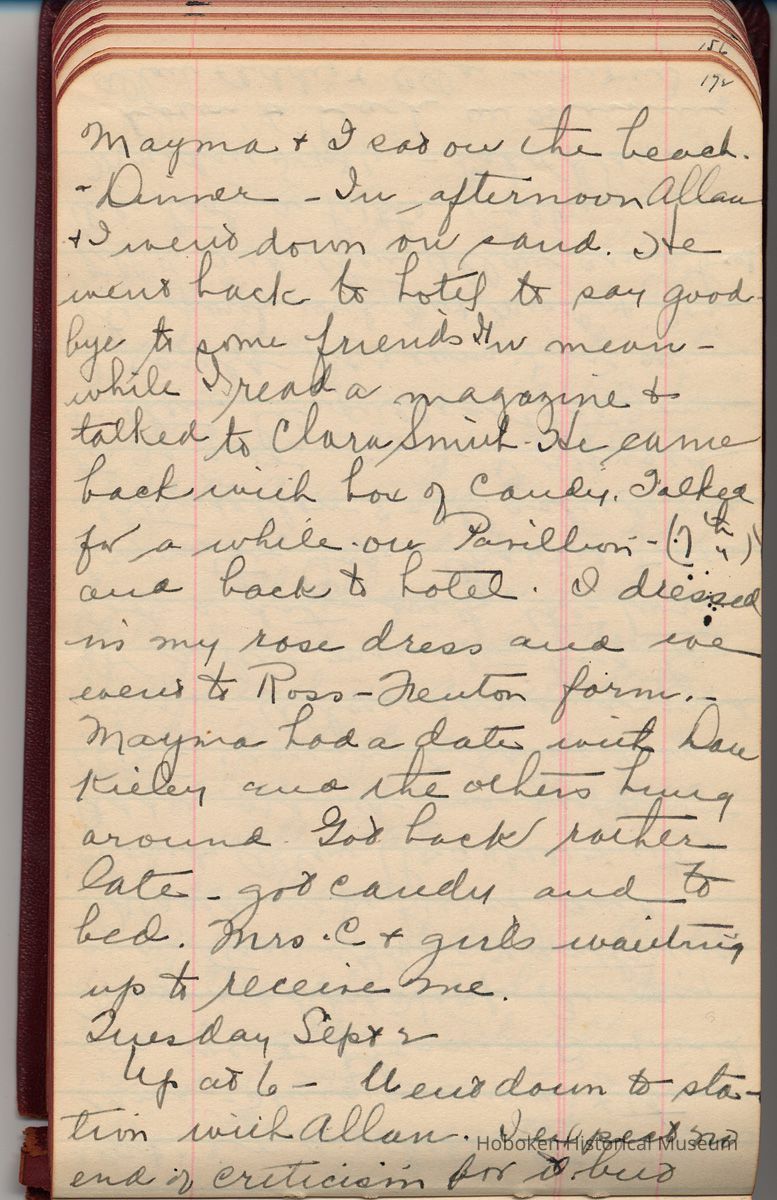 156
172
Mayma + I sat on the beach.
- Dinner - In afternoon Allan
+ I went down on sand. He
went back to hotel to say good-
bye to some friends In mean-
while I read a magazine &
talked to Clara Smith. He came
back with box of candy. Talked
for a while on Pavillion - (7th ")
and back to hotel. I dressed
in my rose dress and we
went to Ross-Fenton farm. -
Mayma had a date with Dan
Kieley and the others hung
around. Got back rather
late - got candy and to
bed. Mrs. C + girls waiting
up to receive me.
Tuesday Sept 2
Up at 6 - Went down to sta-
tion with Allan. I expect no
end of criticism for it but
Hoboken Historical Museum